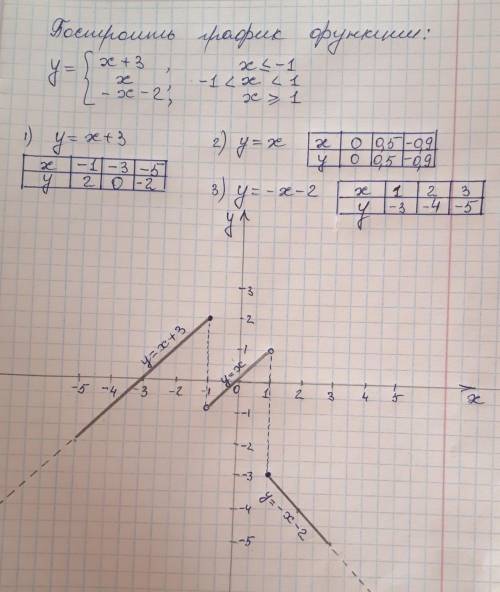 Построить график функции:
y = { x+3 , x ≤ -1
x -1 < x < 1
-x-2; x ⩾ 1
1) y = x+3
x -1 -3 -5
y 2 0 -2
2) y = x
x 0 0,5 -0,9
y 0 0,5 -0,9
3) y = -x-2
x 1 2 3
y -3 -4 -5
y
3
2
1
y=x+3
y=x
-5 -4 -3 -2 -1 0 1 2 3 4 5 x
-1
-2
-3
-4
-5
y=-x-2